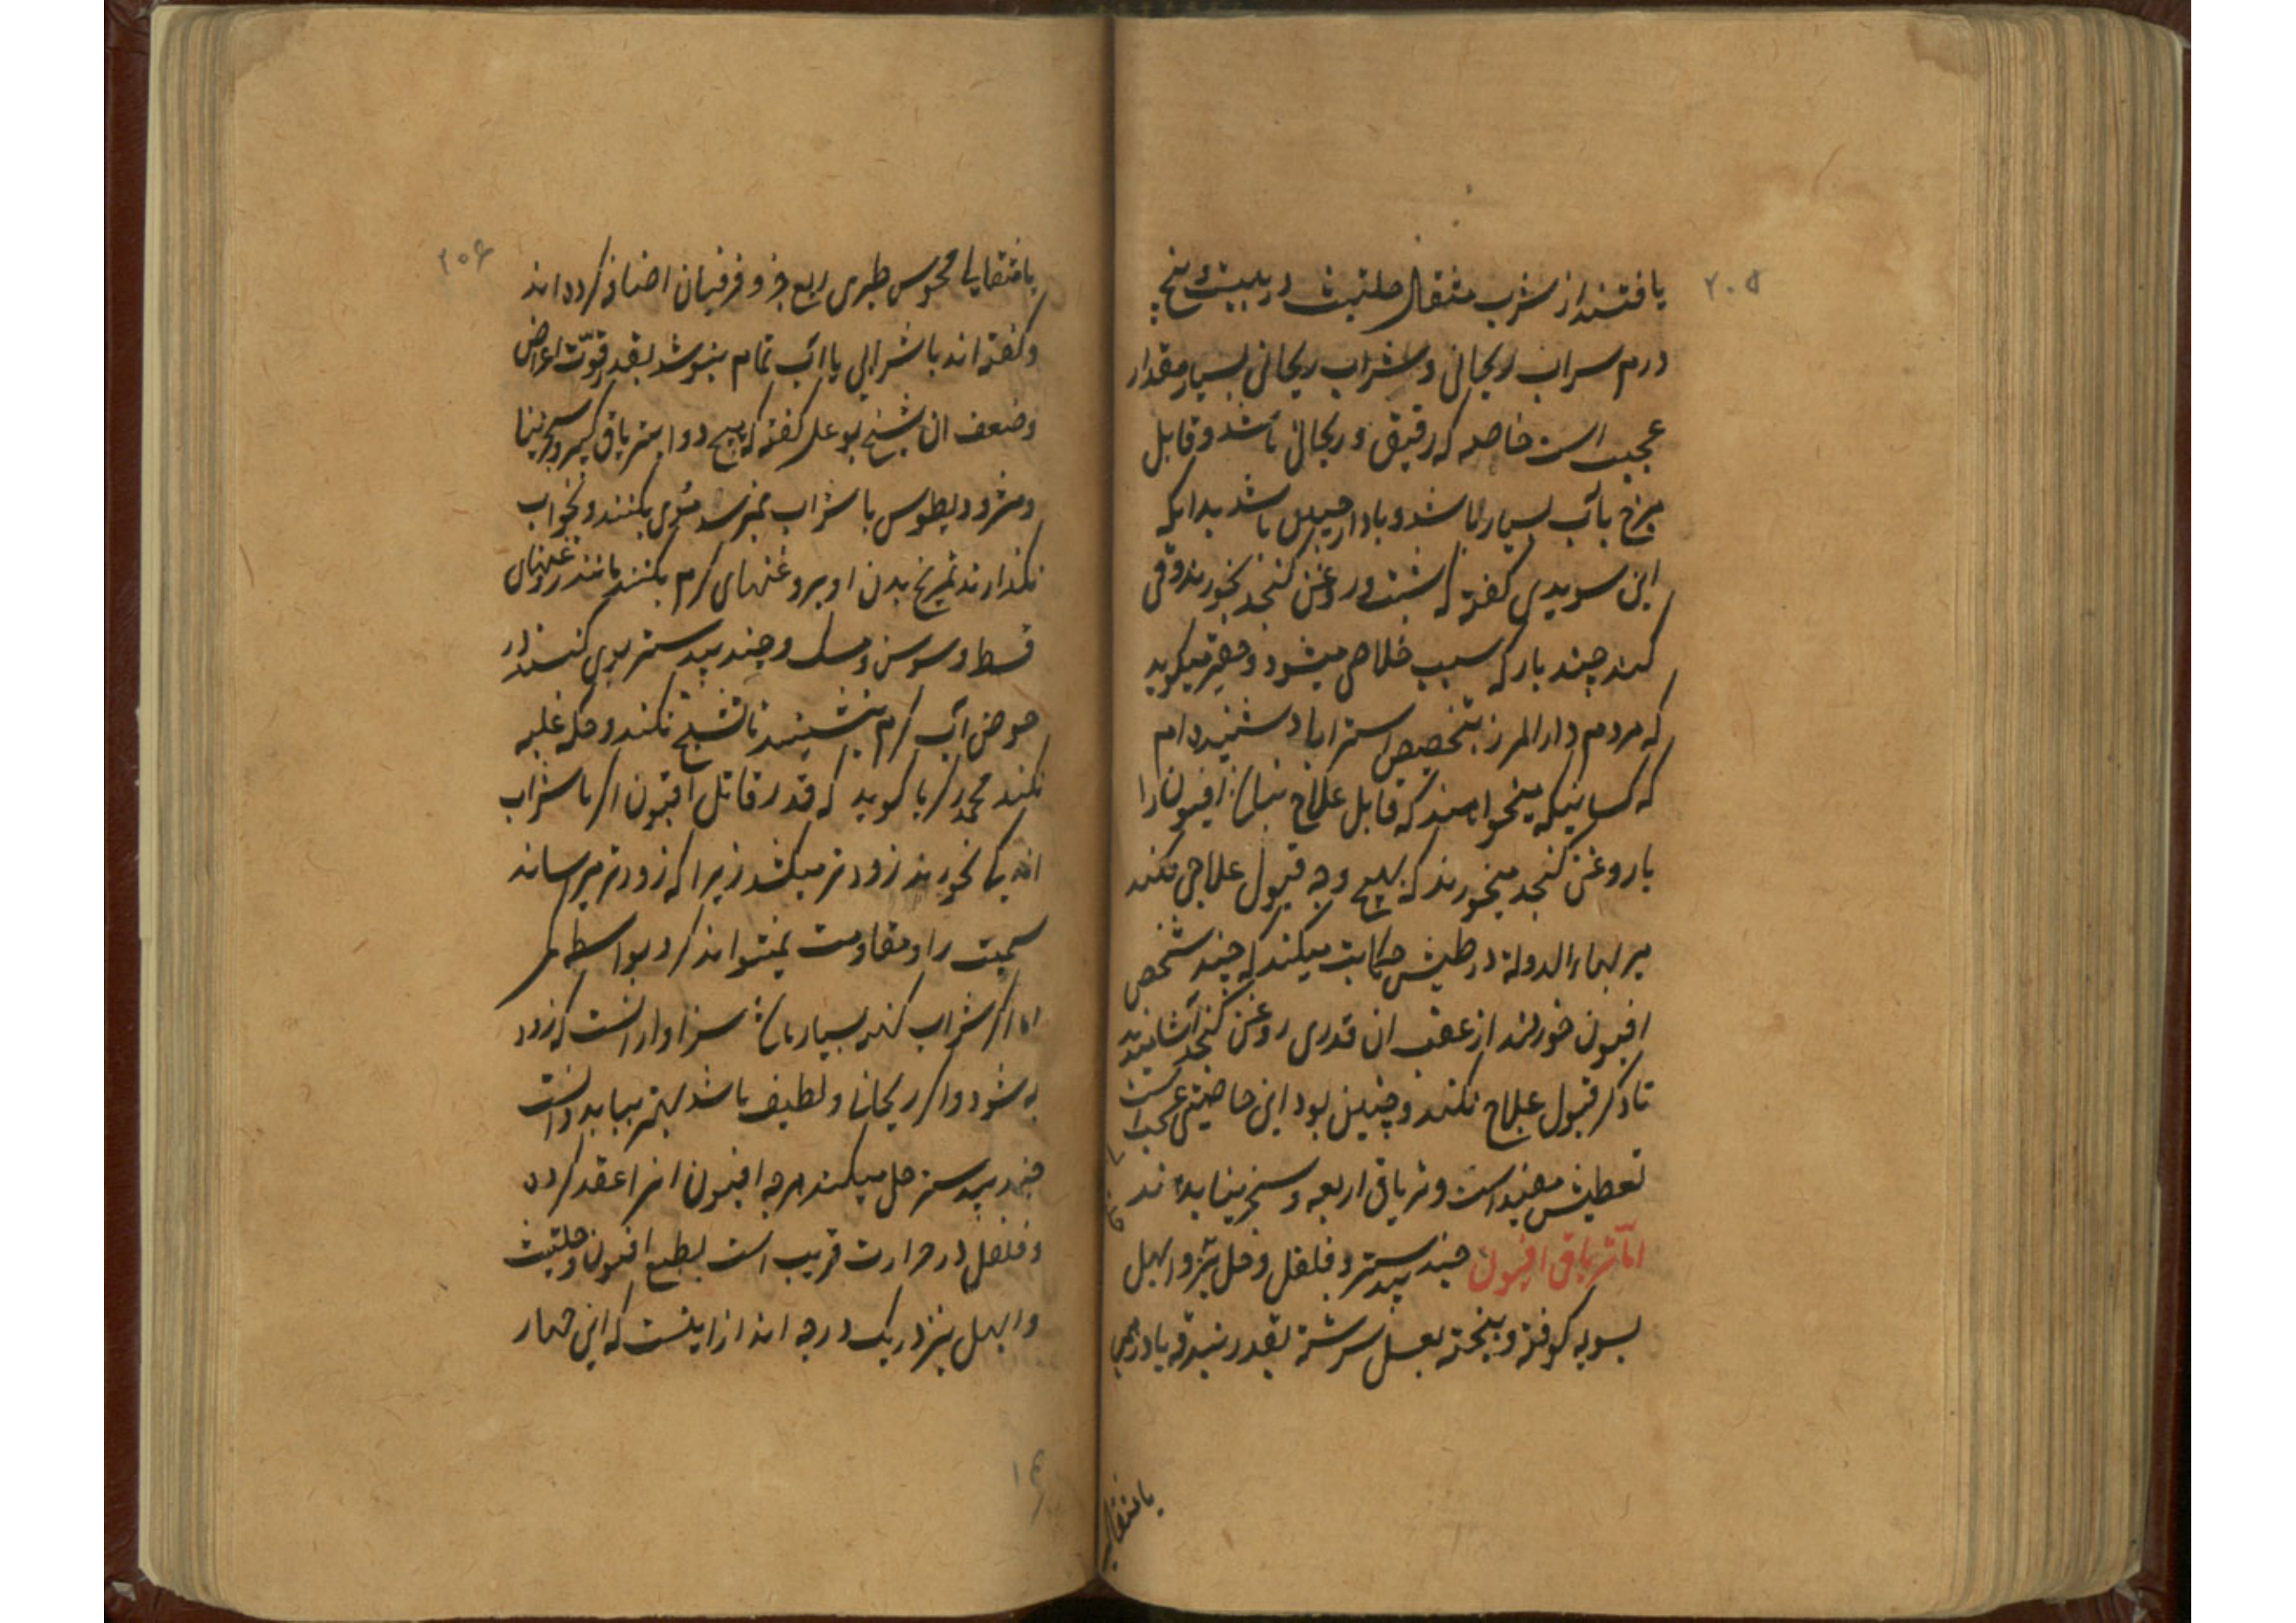 ۲۰۵
یافتند از شرب مثقال حلتیت در بیست پنج
درم سراب ریحانی و شراب ریحانی بسیار مقدار
عجیب است خاصه که رقیق و ریحانی باشد و قابل
مزج بآب بسیار باشد و با دارچینی باشد بدانکه
ابن سویدی گفته که شبت و روغن کنجد بخورند و قی
کنند چند بار که سبب خلاص میشود و حقیر میکوید
که مردم دار المرز بتخصیص استراباد شنیده ام
که کسانیکه میخواهند که قابل علاج نباشد افیون را
با روغن کنجد میخورند که بهیچ وجه قبول علاجی نکند
میر بهاء الدولة در طبش حکایت میکند که چند شخص
افیون خوردند از عقب ان قدری روغن کنجد آشامیدند
تا دکر قبول علاج نکند و چنین بود این خاصیتی عجب است
تعطیش مفید است و تریاق اربعه و سنجرینیا بدهند
اما تریاق افیون جند بیدستر و فلفل و حلتیت و ابهل
بسویه کوفته و بیخته بعسل سرشته بقدر بندقه یا درهمی
یا مثقالی
۲۰۶
یا مثقالی مجوس طبری ربع جزو فرفیان اضافه کرده اند
و کفته اند با شرابی یا آب تمام بنوشد بقدر قوّت اعراض
و ضعف ان شیخ بو علی کفته که هیچ دوا بتریاق کبیر و سجرنیا
و مثرودیطوس با شراب نمیرسد مقوی بکنند و بخواب
نکذارند تمریخ بدن او بروغنهای کرم بکنند مانند روغنهای
قسط و سوسن و مسک و جند بیدستر بوی کنند در
حوض آب کرم بنشینند تا تشنج نکند و حکه غلبه
نکند محمد زکریا کوید که قدر قاتل افیون اکر با شراب
اندکی بخورند زودتر میکشد زیرا که زودتر میرساند
سمیت را و مقاومت نمیتواند کرد بواسطه
اما اکر شراب کهنه بسیار باشد سزاوار است که زود
به شود و اکر ریحانی و لطیف باشد بهتر میباید دانست
جند بیدستر حل میکند هرچه افیون انرا عقد کرده
و فلفل در حرارت قریب است بطبع افیون و حلتیت
و ابهل نیز در یک درجه اند از اینست که این چهار